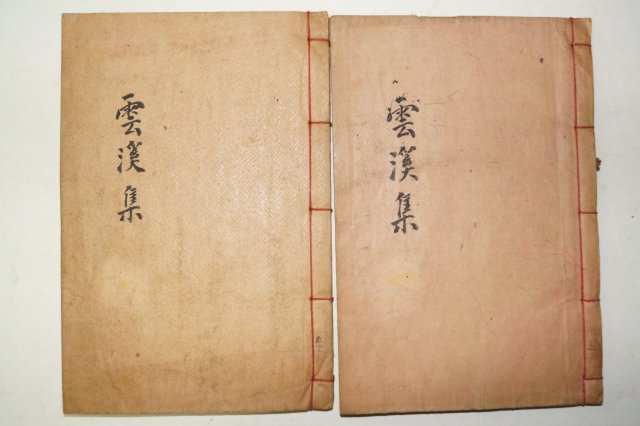 雲溪集
雲溪集